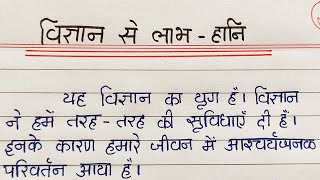 विज्ञान से लाभ - हानि
यह विज्ञान का युग है। विज्ञान
ने हमें तरह - तरह की सुविधाएँ दी है।
इनके कारण हमारे जीवन में आश्चर्यजनक
परिवर्तन आया है।